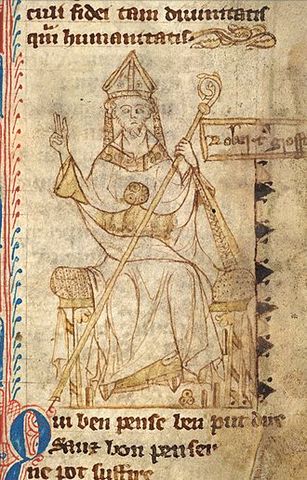 culi fidei tam diuinitatis
qm̄ humanitatis
Robt̓ Gross
Qui ben pense ben put dire
Sanz bon penser
ne pot suffire